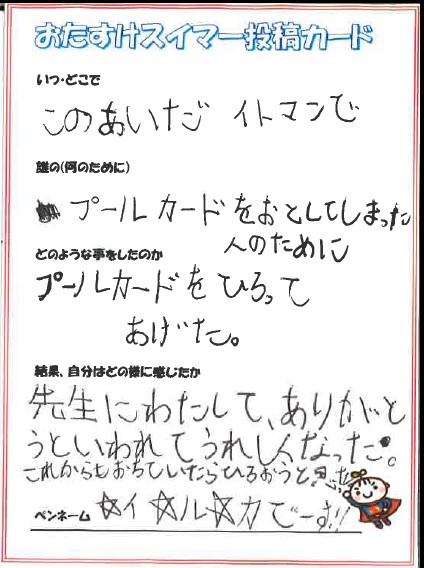 おたすけスイマー投稿カード
いつ・どこで
このあいだ イトマンで
誰の(何のために)
プールカードをおとしてしまった
人のために
どのような事をしたのか
プールカードをひろって
あげた。
結果、自分はどの様に感じたか
先生にわたして、ありがと
うといわれてうれしくなった。
これからもおちていたらひろおうと思った
ペンネーム ☆イ☆ル☆カでーす!!